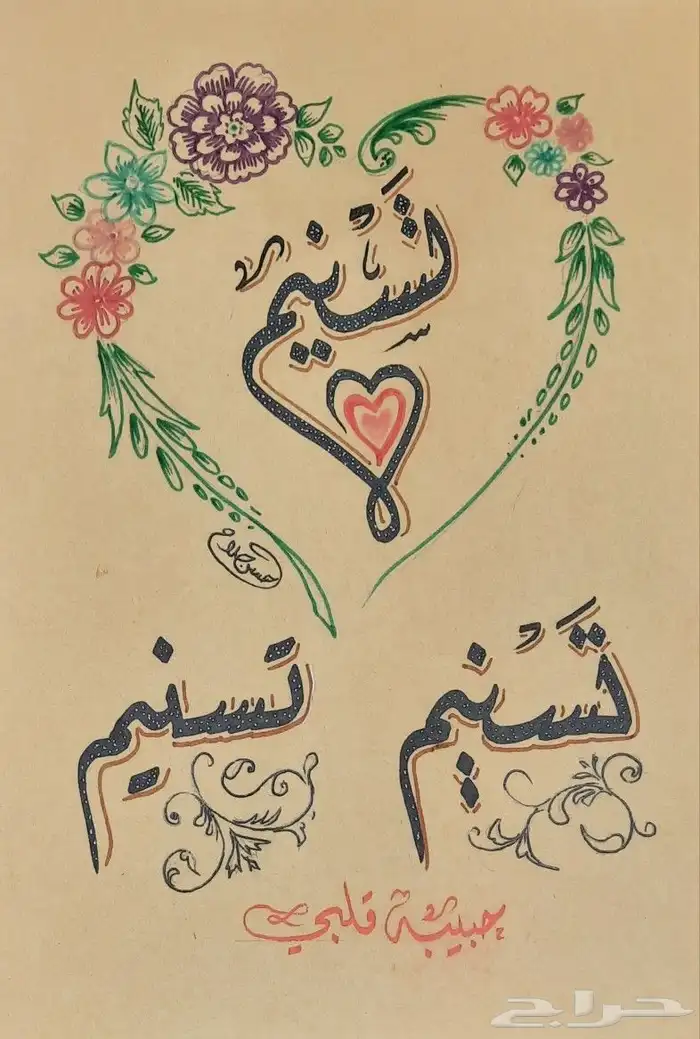 تَسْنيم
حسن جلاوي
تَسْنيم
تسنيم
حبيبة قلبي
حراج